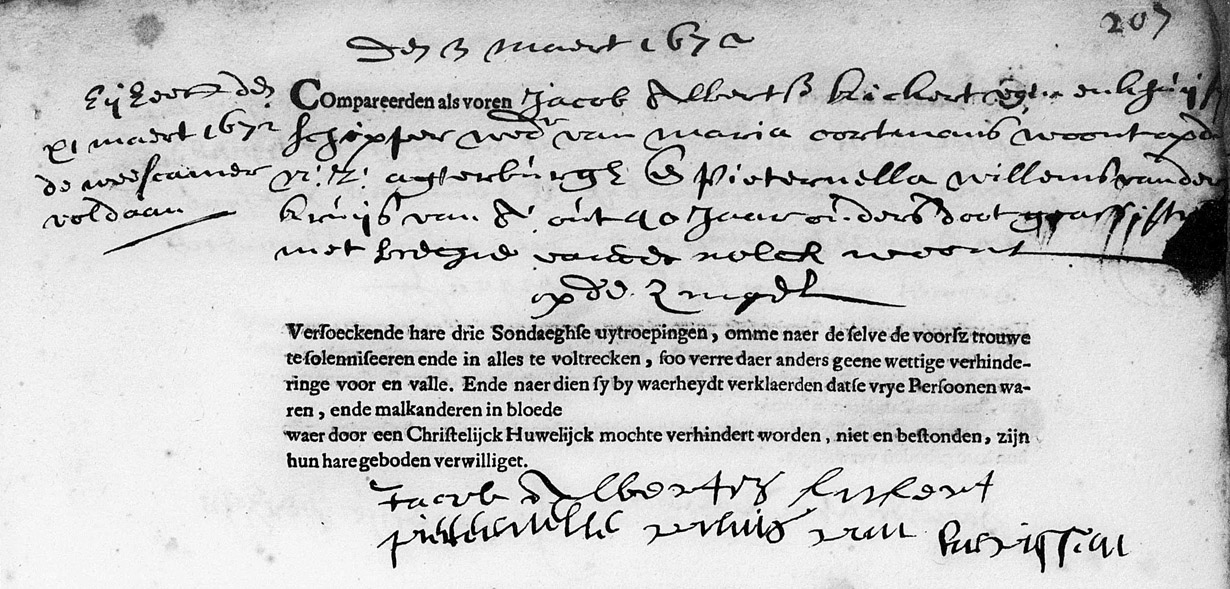 207
Den 3 maert 1672
Hij heeft den
21 maert 1672
de weescamer
voldaan
COmpareerden als voren Jacob Albertsz Kickert van enkhuijs
schipper wedr van Maria oortmans woont op de
N: Z: agterburgh & Pieternella willems vander
kruijs van A out 40 Jaar ouders doot geassist
met woont
op de Singel
Versoeckende hare drie Sondaeghse uytroepingen, omme naer de selve de voorsz trouwe
te solenniseeren ende in alles te voltrecken, soo verre daer anders geene wettige verhinde-
ringe voor en valle. Ende naer dien sy by waerheydt verklaerden datse vrye Persoonen wa-
ren, ende malkanderen in bloede
waer door een Christelijck Huwelijck mochte verhindert worden, niet en bestonden, zijn
hun hare geboden verwilliget.
Jacob Albertsz kickert
pieternella van